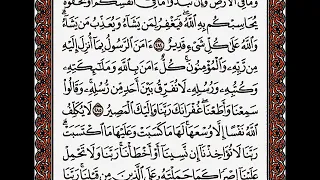 وَمَا فِي ٱلْأَرْضِ وَإِن تُبْدُوا۟ مَا فِىٓ أَنفُسِكُمْ أَوْ تُخْفُوهُ
يُحَاسِبْكُم بِهِ ٱللَّهُ فَيَغْفِرُ لِمَن يَشَآءُ وَيُعَذِّبُ مَن يَشَآءُ
وَٱللَّهُ عَلَىٰ كُلِّ شَىْءٍ قَدِيرٌ ٢٨٤ ءَامَنَ ٱلرَّسُولُ بِمَآ أُنزِلَ إِلَيْهِ
مِن رَّبِّهِۦ وَٱلْمُؤْمِنُونَ كُلٌّ ءَامَنَ بِٱللَّهِ وَمَلَـٰٓئِكَتِهِۦ
وَكُتُبِهِۦ وَرُسُلِهِۦ لَا نُفَرِّقُ بَيْنَ أَحَدٍ مِّن رُّسُلِهِۦ وَقَالُوا۟
سَمِعْنَا وَأَطَعْنَا غُفْرَانَكَ رَبَّنَا وَإِلَيْكَ ٱلْمَصِيرُ ٢٨٥ لَا يُكَلِّفُ
ٱللَّهُ نَفْسًا إِلَّا وُسْعَهَا لَهَا مَا كَسَبَتْ وَعَلَيْهَا مَا ٱكْتَسَبَتْ
رَبَّنَا لَا تُؤَاخِذْنَآ إِن نَّسِينَآ أَوْ أَخْطَأْنَا رَبَّنَا وَلَا تَحْمِلْ
عَلَيْنَآ إِصْرًا كَمَا حَمَلْتَهُۥ عَلَى ٱلَّذِينَ مِن قَبْلِنَا رَبَّنَا